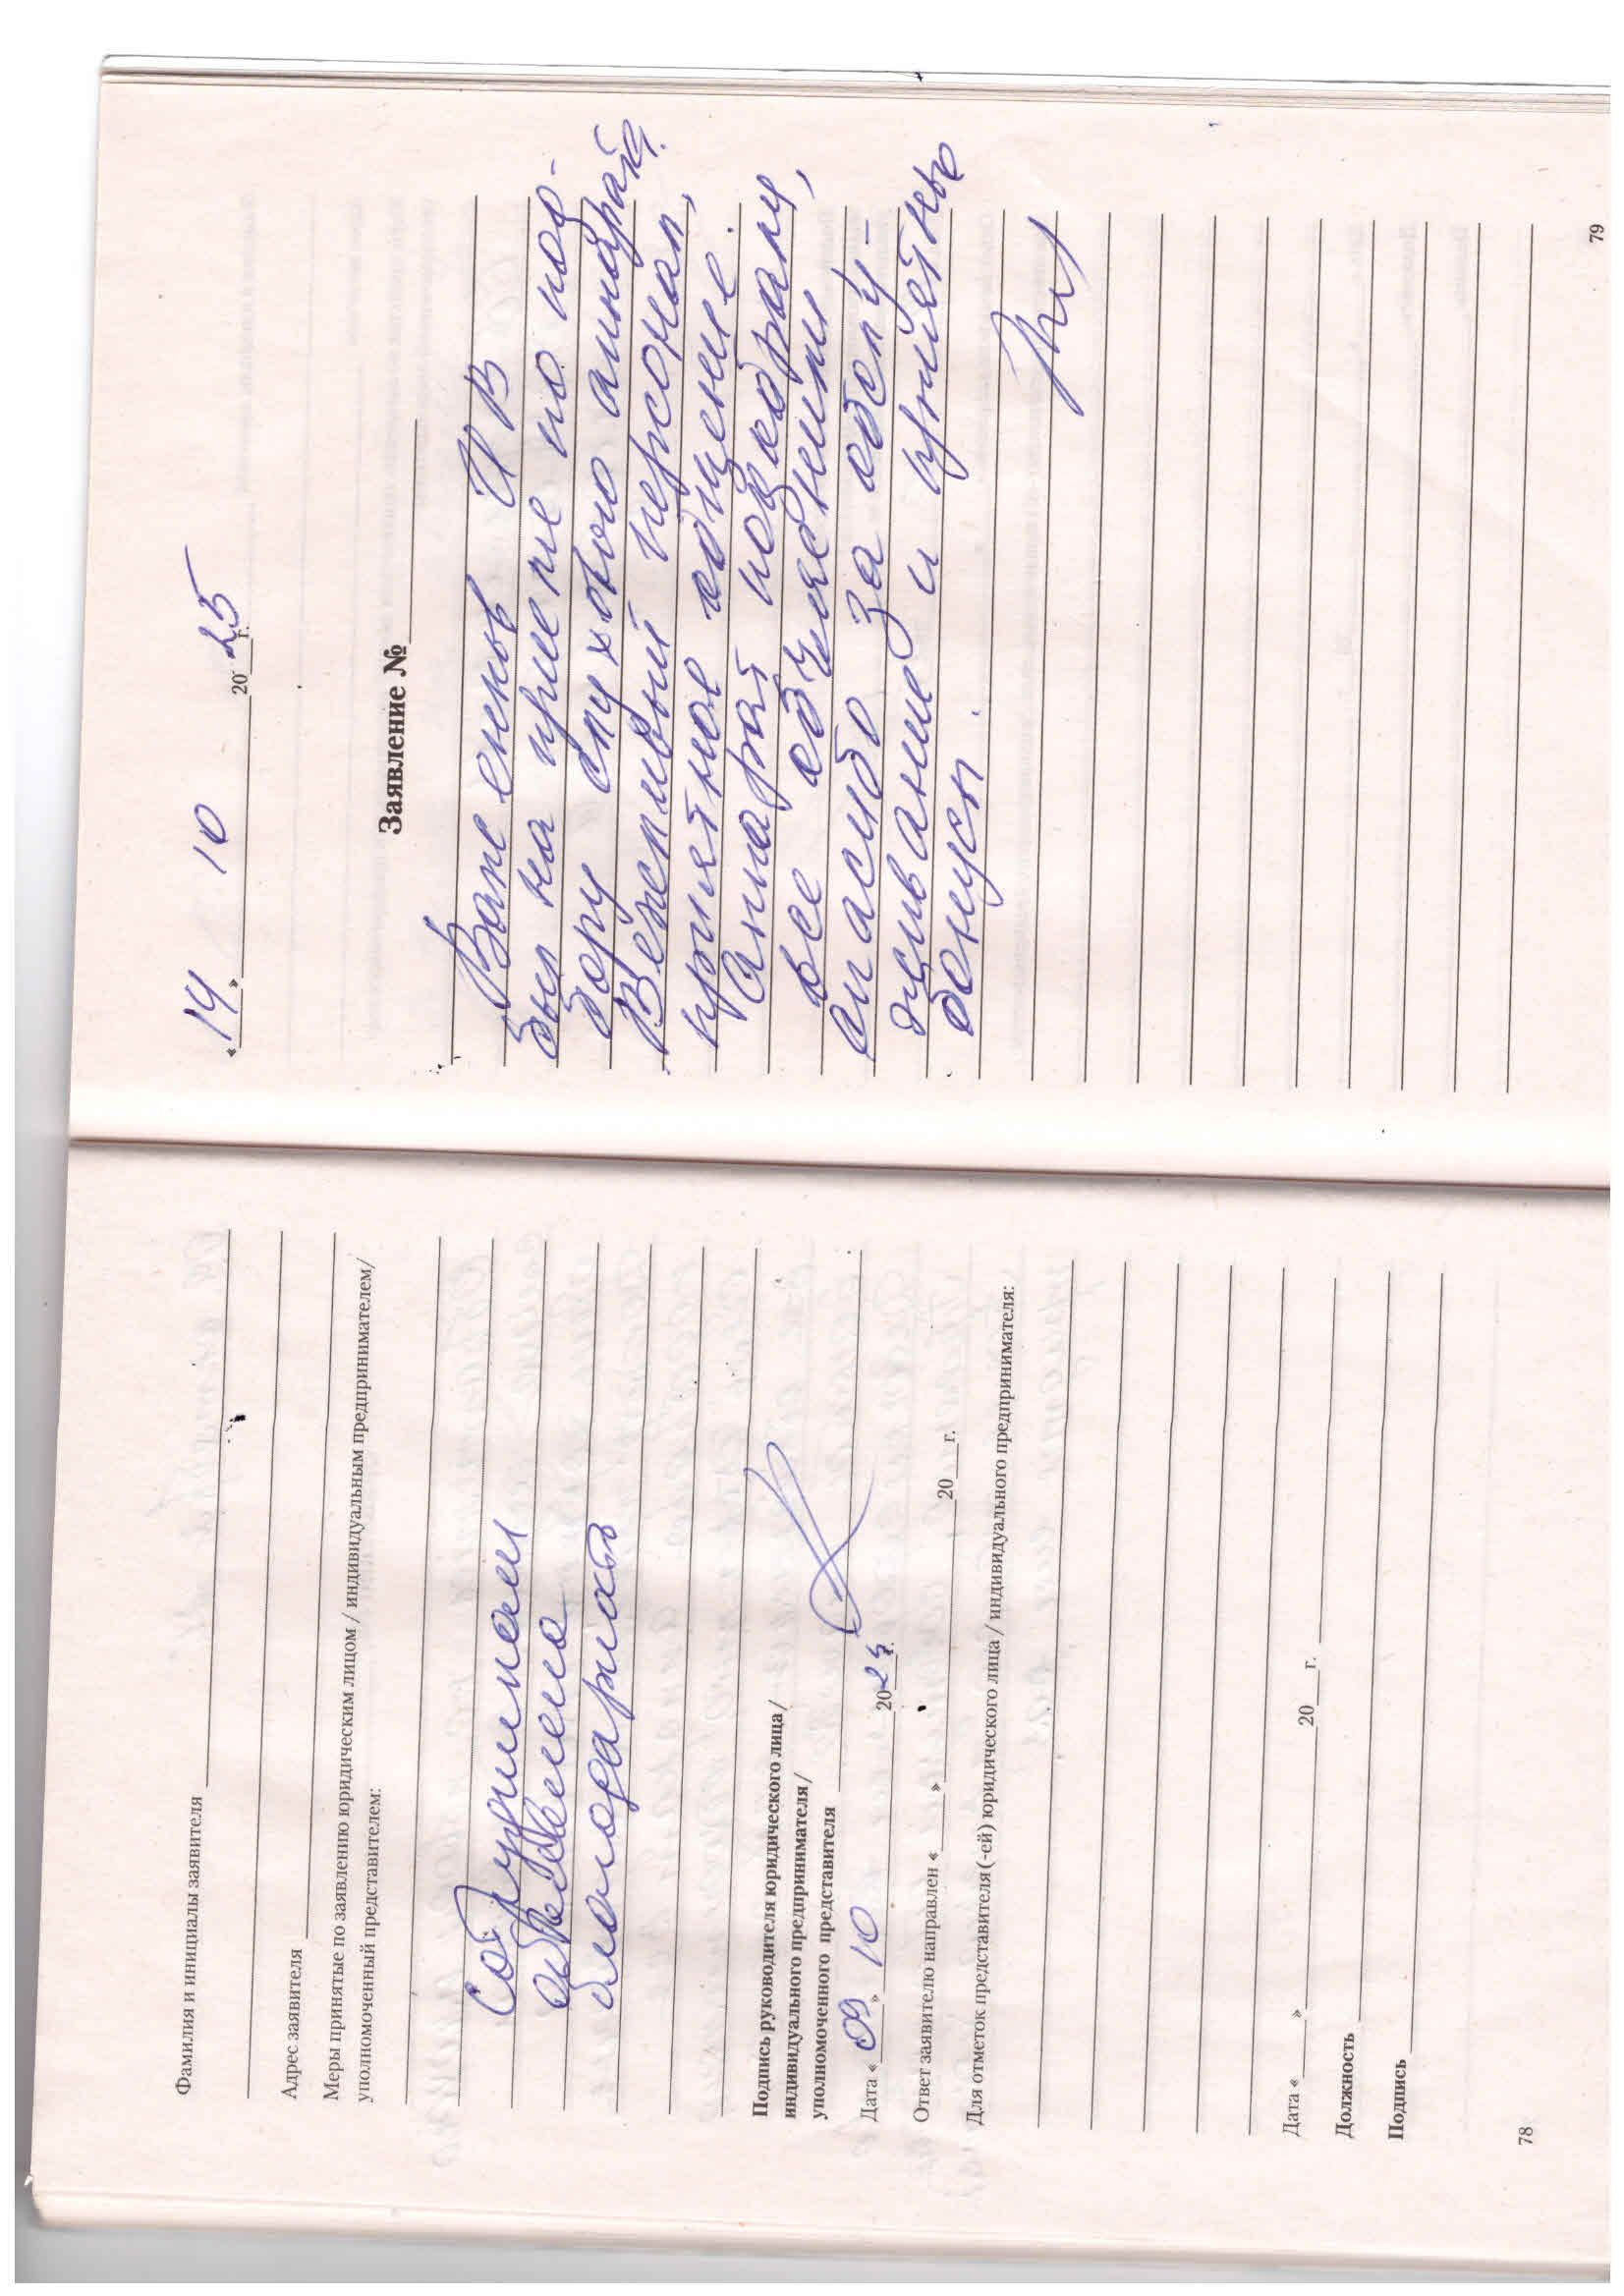 Фамилия и инициалы заявителя
Адрес заявителя
Меры принятые по заявлению юридическим лицом / индивидуальным предпринимателем/
уполномоченный представителем:
Сотрудникам
объявлена
благодарность
Подпись руководителя юридического лица/
индивидуального предпринимателя/
уполномоченного представителя
Дата « 09 » 10 20 25 г.
Ответ заявителю направлен «___» 20___г.
Для отметок представителя (-ей) юридического лица / индивидуального предпринимателя:
Дата «___» 20___г.
Должность
Подпись
78
« 14 » 10 20 25 г.
Заявление №
Важенков И В
был на приеме по под-
бору слухового аппарата.
Вежливый персонал,
приятное общение.
Аппарат подобрали,
все объяснили
спасибо за обслу-
живание и приятные
бонусы.
79